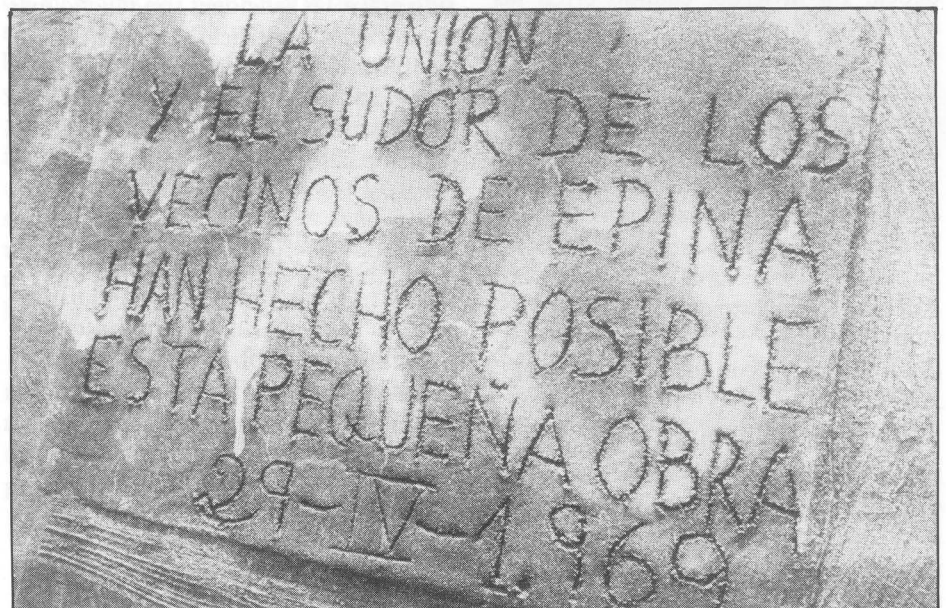 LA UNION
Y EL SUDOR DE LOS
VECINOS DE EPINA
HAN HECHO POSIBLE
ESTA PEQUEÑA OBRA
29-IV-1.969